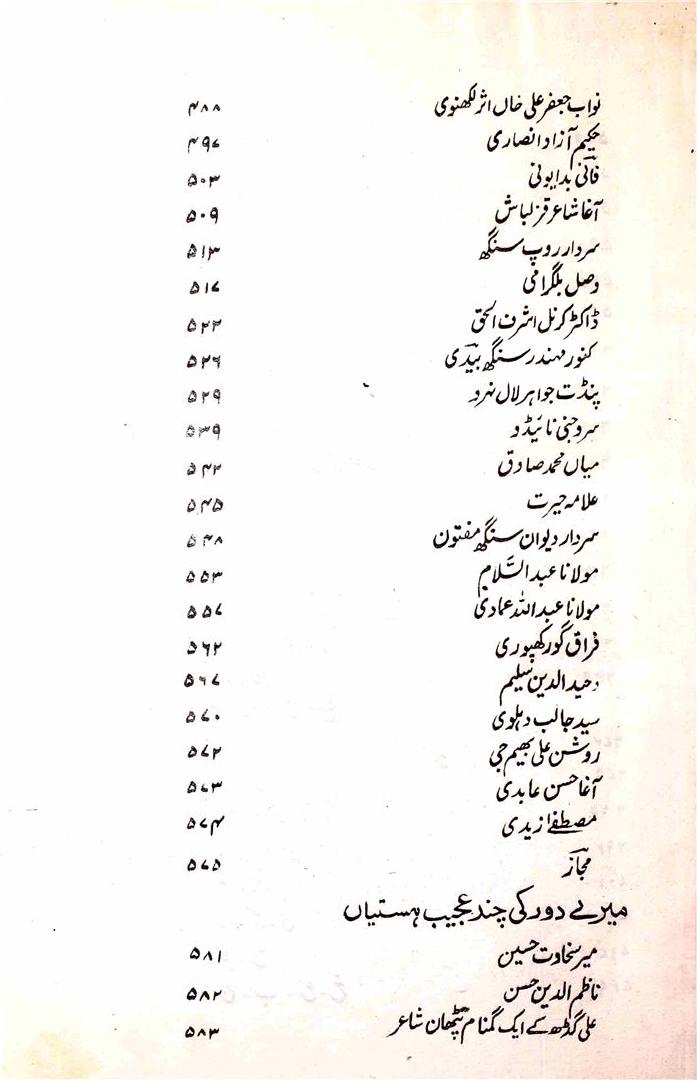 نواب جعفر علی خاں اثر لکھنوی ۴۸۸
حکیم آزاد انصاری ۴۹۷
فانی بدایونی ۵۰۳
آغا شاعر قزلباش ۵۰۹
سردار روپ سنگھ ۵۱۳
وصل بلگرامی ۵۱۷
ڈاکٹر کرنل اشرف الحق ۵۲۲
کنور مہندر سنگھ بیدی ۵۲۶
پنڈت جواہر لال نہرو ۵۲۹
سروجنی نائیڈو ۵۳۹
میاں محمد صادق ۵۴۲
علامہ حیرت ۵۴۵
سردار دیوان سنگھ مفتون ۵۴۸
مولانا عبد السّلام ۵۵۳
مولانا عبد اللہ عمادی ۵۵۷
فراق گورکھپوری ۵۶۲
وحید الدین سلیم ۵۶۷
سید جالب دہلوی ۵۷۰
روشن علی بھیم جی ۵۷۲
آغا حسن عابدی ۵۷۳
مصطفےٰ زیدی ۵۷۴
مجاز ۵۷۵
میرے دور کی چند عجیب ہستیاں
میر سخاوت حسین ۵۸۱
ناظم الدین حسن ۵۸۲
علی گڑھ کے ایک گمنام پٹھان شاعر ۵۸۳